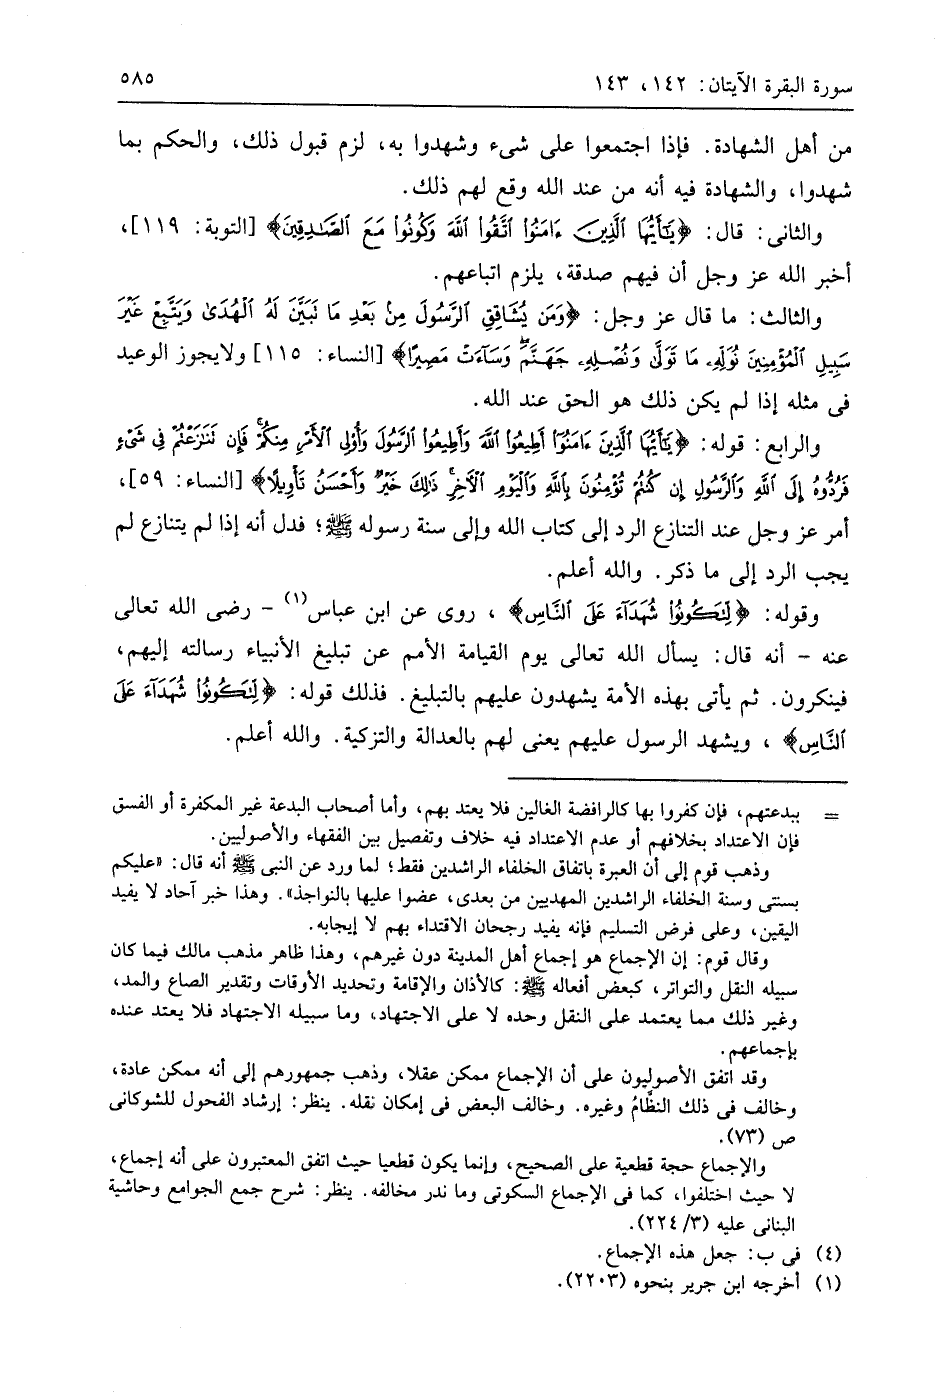 سورة البقرة الآيتان: ١٤٢، ١٤٣
٥٨٥
من أهل الشهادة. فإذا اجتمعوا على شىء وشهدوا به، لزم قبول ذلك، والحكم بما
شهدوا، والشهادة فيه أنه من عند الله وقع لهم ذلك.
والثانى: قال: ﴿يَٰٓأَيُّهَا ٱلَّذِينَ ءَامَنُوا۟ ٱتَّقُوا۟ ٱللَّهَ وَكُونُوا۟ مَعَ ٱلصَّٰدِقِينَ﴾ [التوبة: ١١٩]،
أخبر الله عز وجل أن فيهم صدقة، يلزم اتباعهم.
والثالث: ما قال عز وجل: ﴿وَمَن يُشَاقِقِ ٱلرَّسُولَ مِنۢ بَعْدِ مَا تَبَيَّنَ لَهُ ٱلْهُدَىٰ وَيَتَّبِعْ غَيْرَ
سَبِيلِ ٱلْمُؤْمِنِينَ نُوَلِّهِۦ مَا تَوَلَّىٰ وَنُصْلِهِۦ جَهَنَّمَ ۖ وَسَآءَتْ مَصِيرًا﴾ [النساء: ١١٥] ولايجوز الوعيد
فى مثله إذا لم يكن ذلك هو الحق عند الله.
والرابع: قوله: ﴿يَٰٓأَيُّهَا ٱلَّذِينَ ءَامَنُوٓا۟ أَطِيعُوا۟ ٱللَّهَ وَأَطِيعُوا۟ ٱلرَّسُولَ وَأُو۟لِى ٱلْأَمْرِ مِنكُمْ ۖ فَإِن تَنَٰزَعْتُمْ فِى شَىْءٍ
فَرُدُّوهُ إِلَى ٱللَّهِ وَٱلرَّسُولِ إِن كُنتُمْ تُؤْمِنُونَ بِٱللَّهِ وَٱلْيَوْمِ ٱلْأَخِرِ ۚ ذَٰلِكَ خَيْرٌ وَأَحْسَنُ تَأْوِيلًا﴾ [النساء: ٥٩]،
أمر عز وجل عند التنازع الرد إلى كتاب الله وإلى سنة رسوله ﷺ؛ فدل أنه إذا لم يتنازع لم
يجب الرد إلى ما ذكر. والله أعلم.
وقوله: ﴿لِّتَكُونُوا۟ شُهَدَآءَ عَلَى ٱلنَّاسِ﴾ ، روى عن ابن عباس(١) - رضى الله تعالى
عنه - أنه قال: يسأل الله تعالى يوم القيامة الأمم عن تبليغ الأنبياء رسالته إليهم،
فينكرون. ثم يأتى بهذه الأمة يشهدون عليهم بالتبليغ. فذلك قوله: ﴿لِّتَكُونُوا۟ شُهَدَآءَ عَلَى
ٱلنَّاسِ﴾ ، ويشهد الرسول عليهم يعنى لهم بالعدالة والتزكية. والله أعلم.
= ببدعتهم، فإن كفروا بها كالرافضة الغالين فلا يعتد بهم، وأما أصحاب البدعة غير المكفرة أو الفسق
فإن الاعتداد بخلافهم أو عدم الاعتداد فيه خلاف وتفصيل بين الفقهاء والأصوليين.
وذهب قوم إلى أن العبرة باتفاق الخلفاء الراشدين فقط؛ لما ورد عن النبى ﷺ أنه قال: «عليكم
بسنتى وسنة الخلفاء الراشدين المهديين من بعدى، عضوا عليها بالنواجذ». وهذا خبر آحاد لا يفيد
اليقين، وعلى فرض التسليم فإنه يفيد رجحان الاقتداء بهم لا إيجابه.
وقال قوم: إن الإجماع هو إجماع أهل المدينة دون غيرهم، وهذا ظاهر مذهب مالك فيما كان
سبيله النقل والتواتر، كبعض أفعاله ﷺ: كالأذان والإقامة وتحديد الأوقات وتقدير الصاع والمد،
وغير ذلك مما يعتمد على النقل وحده لا على الاجتهاد، وما سبيله الاجتهاد فلا يعتد عنده
بإجماعهم.
وقد اتفق الأصوليون على أن الإجماع ممكن عقلا، وذهب جمهورهم إلى أنه ممكن عادة،
وخالف فى ذلك النظَّامُ وغيره. وخالف البعض فى إمكان نقله. ينظر: إرشاد الفحول للشوكانى
ص (٧٣).
والإجماع حجة قطعية على الصحيح، وإنما يكون قطعيا حيث اتفق المعتبرون على أنه إجماع،
لا حيث اختلفوا، كما فى الإجماع السكوتى وما ندر مخالفه. ينظر: شرح جمع الجوامع وحاشية
البنانى عليه (٣/ ٢٢٤).
(٤) فى ب: جعل هذه الإجماع.
(١) أخرجه ابن جرير بنحوه (٢٢٠٣).